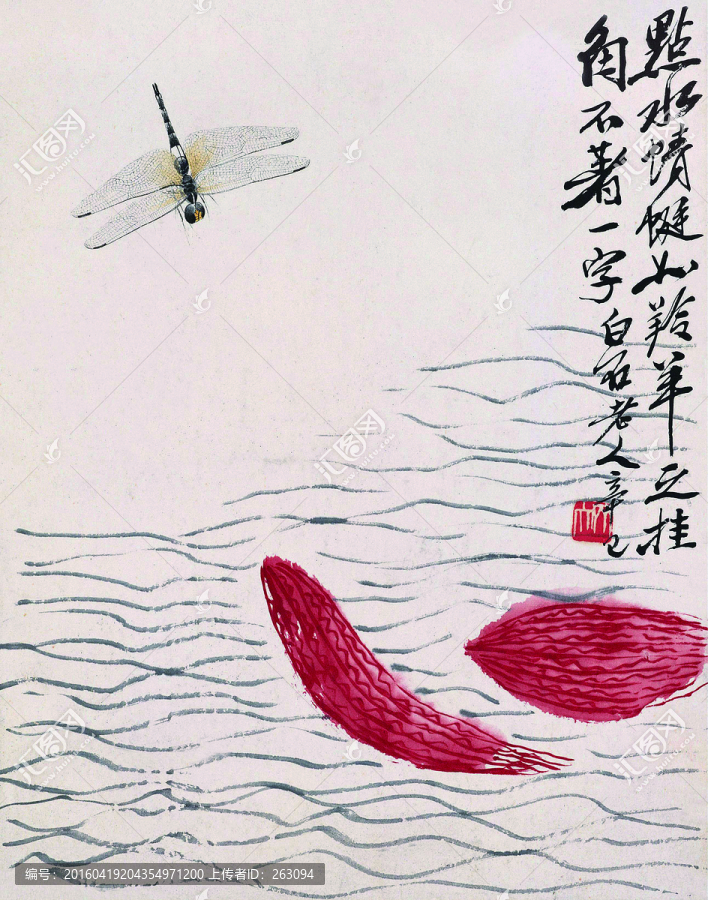 點水蜻蜓如羚羊之挂
角不著一字白石老人辛巳
汇图网
www.huitu.com
编号：20160419204354971200 上传者ID：263094